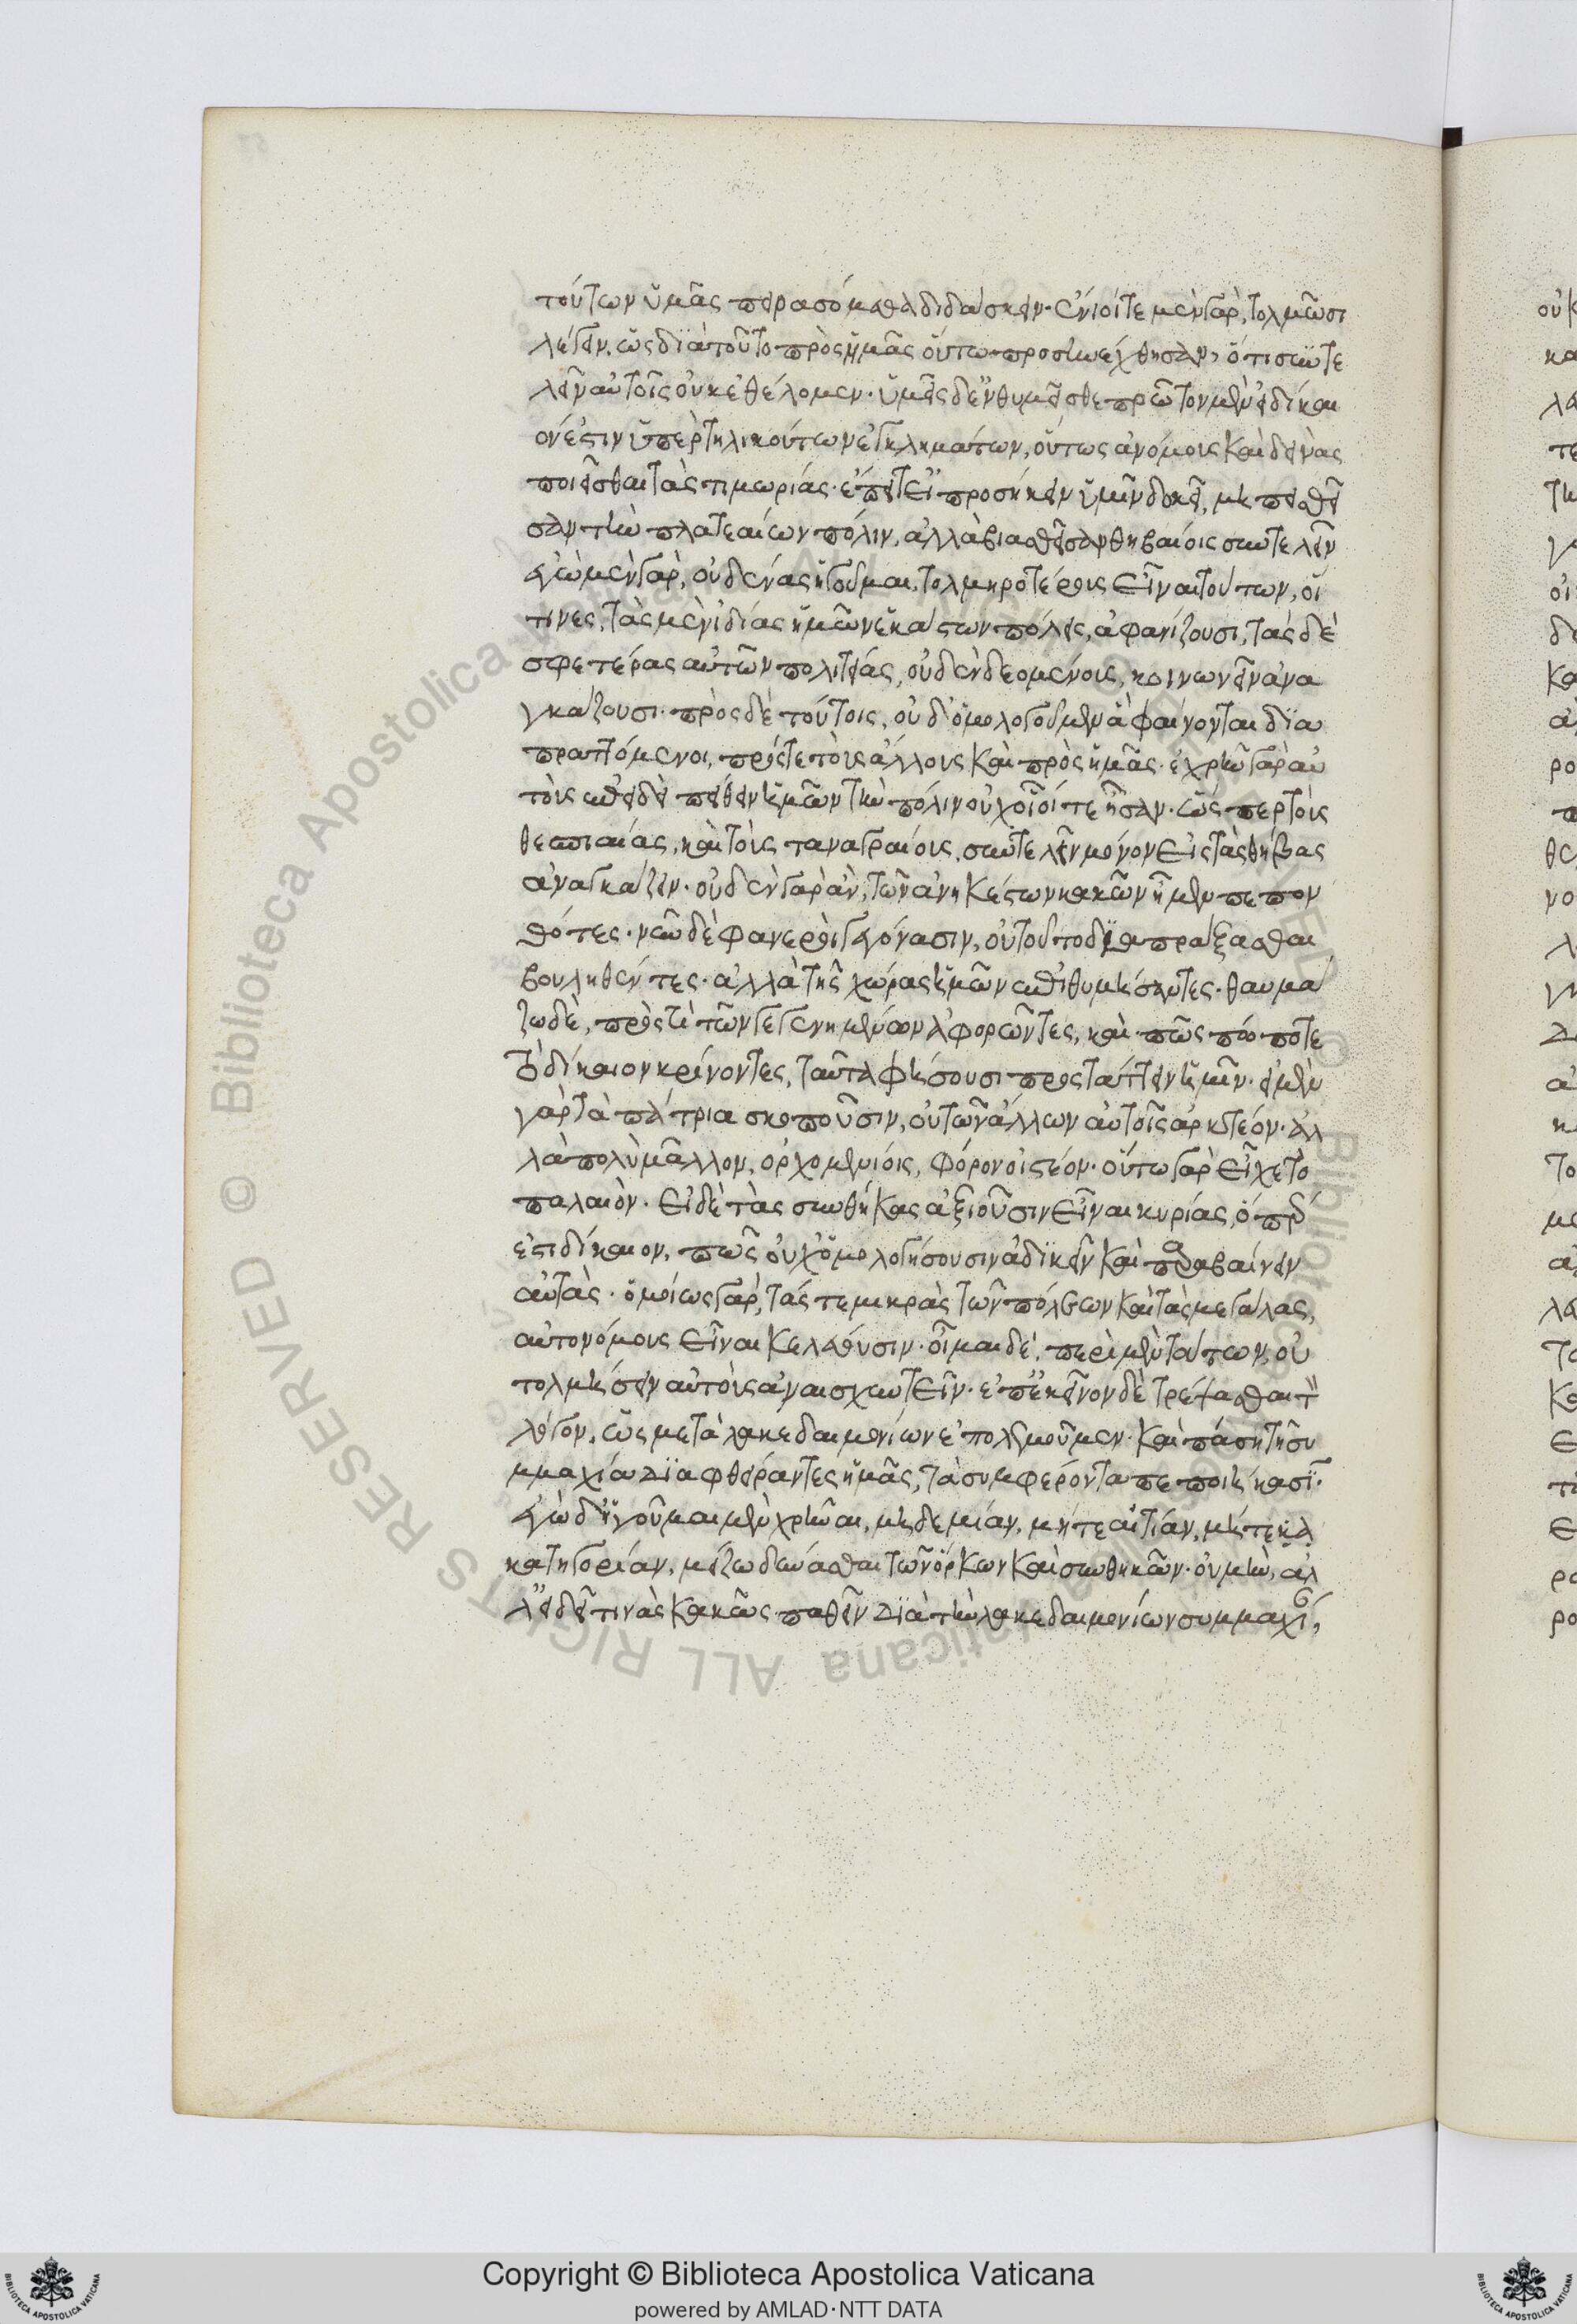 τούτων ὑμᾶς πειράσομαι διδάσκειν· ἐνίοτε μὲν γὰρ, τολμῶσι
λέγειν, ὡς διὰ τοῦτο πρὸς ἡμᾶς οὕτω προσηνέχθησαν, ὅτι συντε
λεῖν αὐτοῖς οὐκ ἐθέλομεν· ὑμεῖς δ' ἐνθυμεῖσθε πρῶτον μὲν εἰ δίκαι
όν ἐστιν ὑπὲρ τηλικούτων ἐγκλημάτων, οὕτως ἀνόμους καὶ δεινὰς
ποιεῖσθαι τὰς τιμωρίας· ἔπειτ' εἰ προσήκειν ὑμῖν δοκεῖ, μὴ πεισθεῖ
σαν τὴν πλαταιέων πόλιν, ἀλλὰ βιασθεῖσαν θηβαίοις συντελεῖν
ἐγὼ μὲν γὰρ, οὐδένας ἡγοῦμαι, τολμηροτέρους εἶναι τούτων, οἵ
τινες, τὰς μὲν ἰδίας ἡμῶν ἑκάστων πόλεις, ἀφανίζουσι, τὰς δὲ
σφετέρας αὐτῶν πολιτείας, οὐδὲν δεομένοις, κοινωνεῖν ἀνα
γκάζουσι· πρὸς δὲ τούτοις, οὐδ' ὁμολογούμενα φαίνονται δια
πραττόμενοι, πρός τε τοὺς ἄλλους καὶ πρὸς ἡμᾶς· ἐχρῆν γὰρ αὐ
τοὺς ἐπειδὴ πείθειν ἡμῶν τὴν πόλιν οὐχ οἷοί τε ἦσαν· ὥσπερ τοὺς
θεσπιέας, καὶ τοὺς ταναγραίους, συντελεῖν μόνον εἰς τὰς θήβας
ἀναγκάζειν· οὐδὲν γὰρ ἂν, τῶν ἀνηκέστων κακῶν ἦμεν πεπον
θότες· νῦν δὲ φανεροὶ γεγόνασιν, οὐ τοῦτο διαπράξασθαι
βουληθέντες· ἀλλὰ τῆς χώρας ἡμῶν ἐπιθυμήσαντες· θαυμά
ζω δὲ, πρὸς τί τῶν γεγενημένων ἀναφορῶντες, καὶ πῶς πώποτε
τὸ δίκαιον κρίνοντες, ταῦτα φήσουσι προστάττειν ἡμῖν· εἰ μὲν
γὰρ τὰ πάτρια σκοποῦσιν, οὐ τῶν ἄλλων αὐτοῖς ἀρκτέον· ἀλ
λὰ πολὺ μᾶλλον, ὀρχομενίοις, φόρον οἰστέον· οὕτω γὰρ εἶχε τὸ
παλαιόν· εἰ δὲ τὰς συνθήκας ἀξιοῦσιν εἶναι κυρίας, ὅπερ
ἐστὶ δίκαιον, πῶς οὐχ ὁμολογήσουσιν ἀδικεῖν καὶ παραβαίνειν
αὐτάς· ὁμοίως γὰρ, τάς τε μικρὰς τῶν πόλεων καὶ τὰς μεγάλας,
αὐτονόμους εἶναι κελεύουσιν· οἶμαι δὲ, περὶ μὲν τούτων, οὐ
τολμήσειν αὐτοὺς ἀναισχυντεῖν· ἐπ' ἐκεῖνον δὲ τρέψεσθαι τὸν
λόγον, ὡς μετὰ λακεδαιμονίων ἐπολεμοῦμεν· καὶ πάσῃ τῇ συ
μμαχίᾳ διαφθείραντες ἡμᾶς, τὰ συμφέροντα πεποιήκασιν·
ἐγὼ δ' ἡγοῦμαι μὲν χρῆναι, μηδεμίαν, μήτε αἰτίαν, μήτε κα
κατηγορίαν, μεῖζω δύνασθαι τῶν ὅρκων καὶ συνθηκῶν· οὐ μὴν, ἀλ
λ' εἰ δεῖ τινὰς κακῶς παθεῖν διὰ τὴν λακεδαιμονίων συμμαχί,